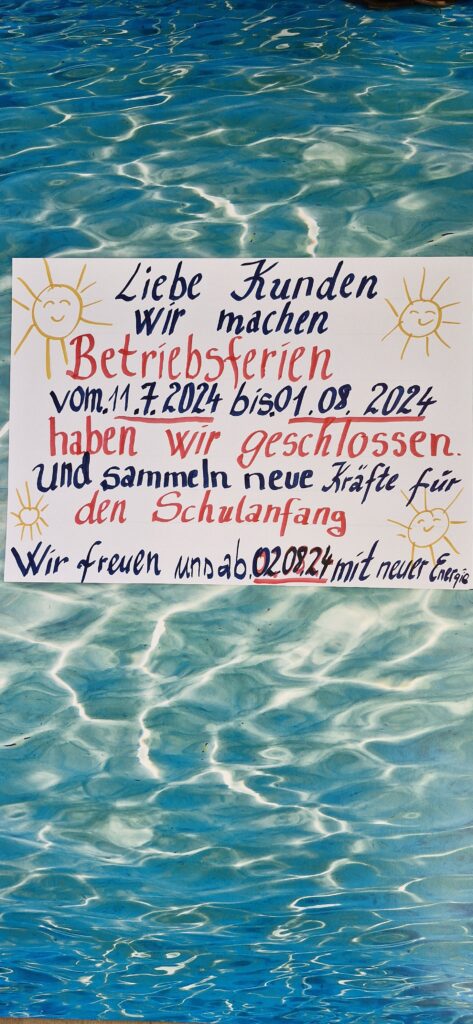 Liebe Kunden
wir machen
Betriebsferien
vom.11.7.2024 bis.01.08.2024
haben wir geschlossen.
und sammeln neue Kräfte für
den Schulanfang
Wir freuen uns ab.020824 mit neuer Energie